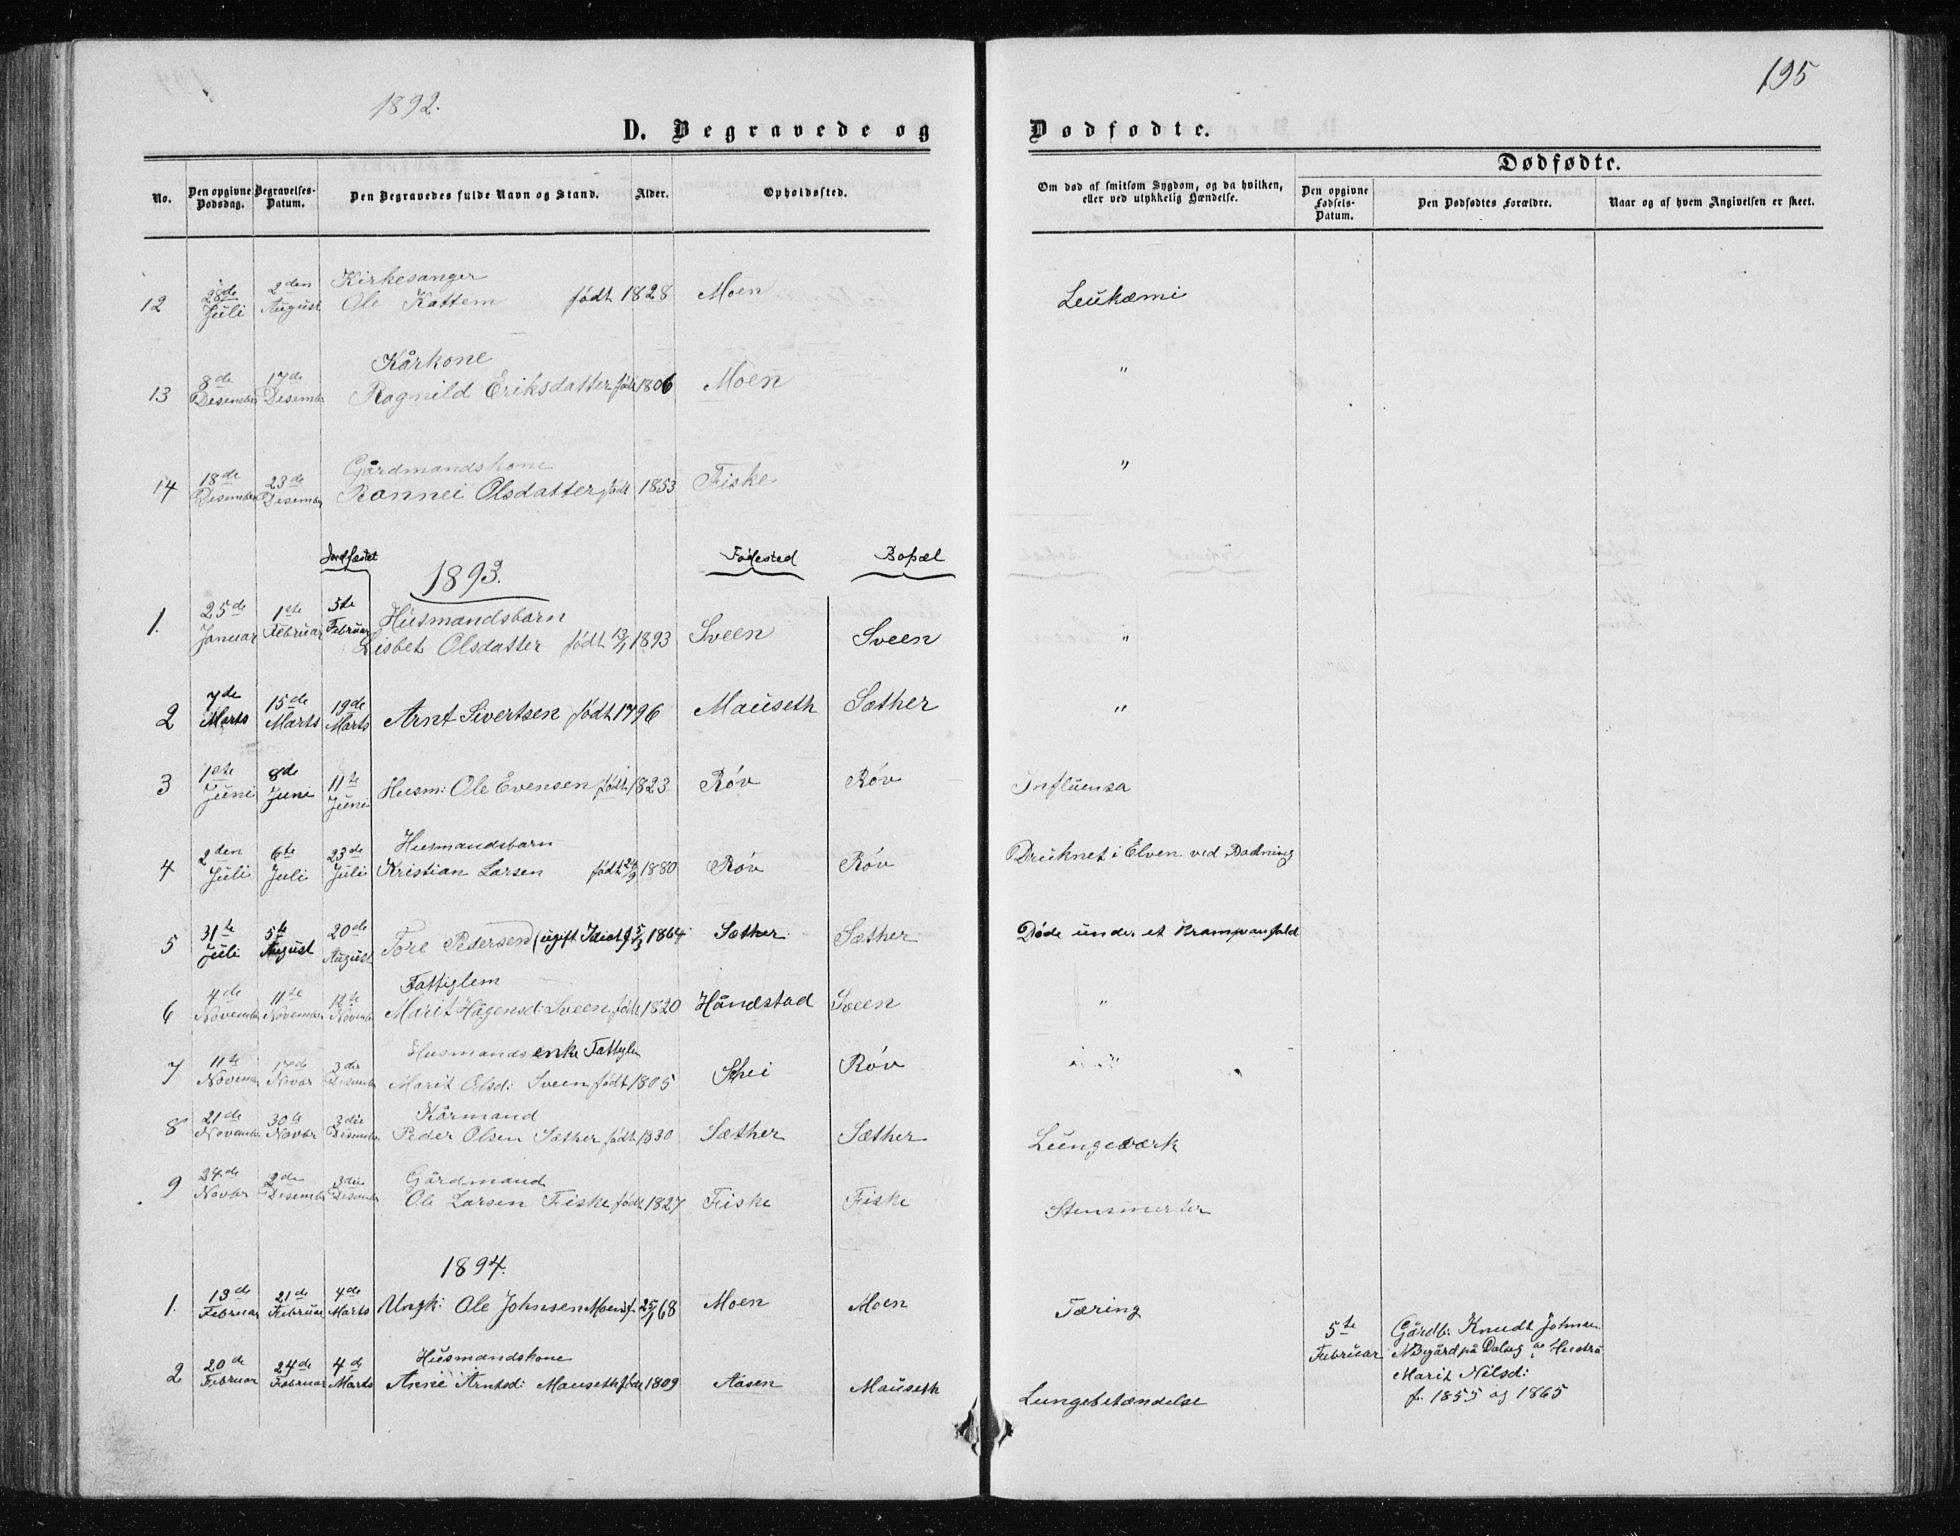 195
1892.
D. Begravede og Dødfødte.
Dødfødte.
No. Den opgivne Dødsdag. Begravelses-Datum. Den Begravedes fulde Navn og Stand. Alder. Opholdssted. Om død af smitsom Sygdom, og da hvilken, eller ved ulykkelig Hændelse. Den opgivne Fødsels-Datum. Den Dødfødtes Forældre. Naar og af hvem Angivelsen er skeet.
Kirkesanger
12 28de Juli 2den August Ole Kattem født 1828 Moen Leukæmi
Kårkone
13 8de Desember 17de Desembr Ragnild Eriksdatter født 1806 Moen "
Gårdmandskone
14 18de Desember 23de Desember Rannei Olsdatter født 1853 Fiske "
Jordfæstet 1893. Fødested Bopæl
Husmandsbarn
1. 25de Januar 1ste Februar 5te Februar Lisbet Olsdatter født 13/1 1893 Sveen Sveen "
2 7de Marts 15de Marts 19de Marts Arnt Sivertsen født 1796 Mauseth Sæther "
3 1ste Juni 8de Juni 11te Juni Husm: Ole Evensen født 1823 Røv Røv Influensa
Husmandsbarn
4 2den Juli 6te Juli 23de Juli Kristian Larsen født 24/9 1880 Røv Røv Druknet i Elven ved Badning
5 31te Juli 5te August 20de August Tore Pedersen (ugift Idiot) f. 5/3 1864 Sæther Sæther Døde under et Krampanfald
Fattiglem
6 4de November 11te November 12te Novembr Marit Hågensd: Sveen født 1820 Håndstad Sveen "
Husmandsenke Fattiglem
7 11te Novembr 17de Novbr 3die Desember Marit Olsd: Sveen født 1805 Skei Røv "
Kårmand
8 21de November 30te Novbr 3die Desember Peder Olsen Sæther født 1830 Sæther Sæther Lungeværk
Gårdmand
9 24de Novbr 2den Desember 3die Desember Ole Larsen Fiske født 1827 Fiske Fiske Stensmerter
1894.
1. 13de Februar 21de Februar 4de Marts Ungk: Ole Johnsen Moen f. 25/1 68 Moen Moen Tæring
Husmandskone
2 20de Februar 24de Februar 4de Marts Anne Arntsd: Mauseth født 1809 Aasen Mauseth Lungebetændelse
5te Februar Gårdb: Knudt Johnsen
Nygård på Dalseg og Hustru
Marit Nilsd:
f. 1855 og 1865